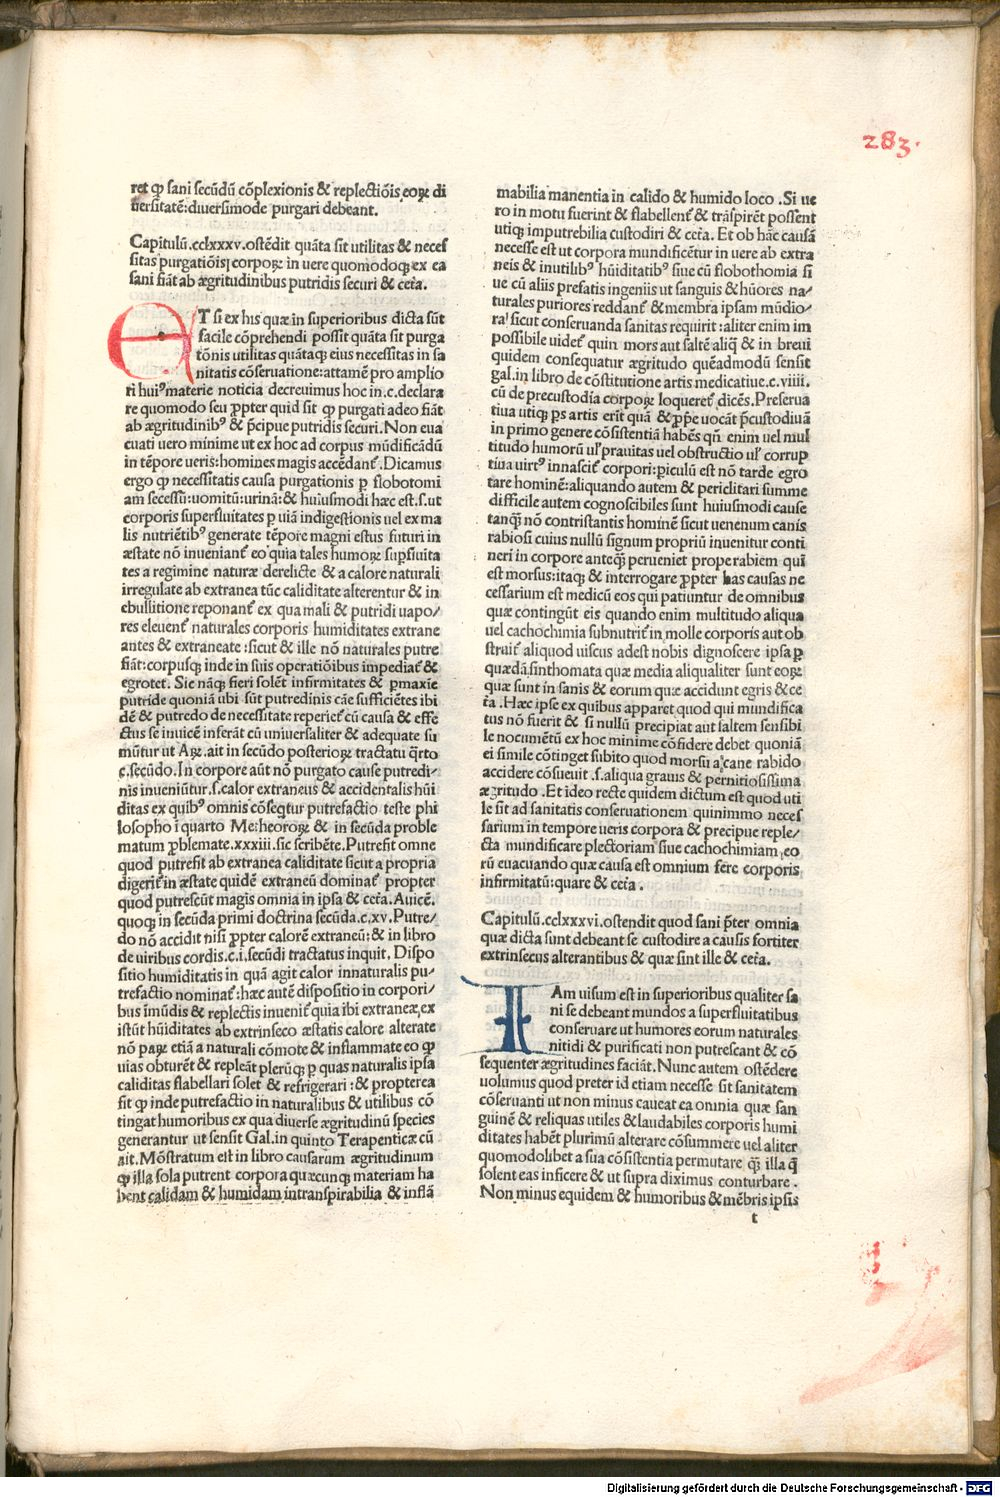 283.
ret ꝙ sani secūdū cōplexionis & replectiōis eoꝝ di
uersitatē: diuersimode purgari debeant.
Capitulū.cclxxxv.ostēdit quāta sit utilitas & neces
sitas purgatiōis corpoꝝ in uere quomodoqꝫ ex ea
sani fiāt ab ægritudinibus putridis securi & ceta.
ET si ex his quæ in superioribus dicta sūt
facile cōprehendi possit quāta sit purga
tōnis utilitas quātaqꝫ eius necessitas in sa
nitatis cōseruatione: attamē pro amplio
ri huiꝰ materie noticia decreuimus hoc in.c.declara
re quomodo seu ꝓpter quid sit ꝙ purgati adeo fiāt
ab ægritudinibꝰ & p̄cipue putridis securi. Non eua
cuati uero minime ut ex hoc ad corpus mūdificādū
in tēpore ueris: homines magis accēdant̄. Dicamus
ergo ꝙ necessitatis causa purgationis ꝑ flobotomi
am secessū: uomitū: urinā: & huiusmodi hæc est.s.ut
corporis superfluitates ꝑ uiā indigestionis uel ex ma
lis nutriētibꝰ generate tēpore magni estus futuri in
æstate nō inueniant̄ eo quia tales humoꝝ suꝑfluita
tes a regimine naturæ derelicte & a calore naturali
irregulate ab extranea tūc caliditate alterentur & in
ebullitione reponant̄ ex qua mali & putridi uapo/
res eleuent̄ naturales corporis humiditates extrane
antes & extraneate: sicut & ille nō naturales putre
fiāt: corpusqꝫ inde in suis operatiōibus impediat̄ &
egrotet. Sic nāqꝫ fieri solēt infirmitates & ꝑmaxie
putride quoniā ubi sūt putredinis cāe sufficiētes ibi
dē & putredo de necessitate reperiet̄ cū causa & effe
ctus se inuicē inferāt cū uniuersaliter & adequate su
mūtur ut Aꝝ.ait in secūdo posterioꝝ tractatu q̄rto
c.secūdo. In corpore aūt nō purgato cause putredi/
nis inueniūtur.s.calor extraneus & accidentalis hūi
ditas ex quibꝰ omnis cōseqtur putrefactio teste phi
losopho ī quarto Metheoroꝝ & in secūda proble
matum ꝓblemate.xxxiii.sic scribēte. Putrefit omne
quod putrefit ab extranea caliditate sicut a propria
digerit̄ in æstate quidē extraneū dominat̄ propter
quod putrescūt magis omnia in ipsa & ceta. Auicē.
quoqꝫ in secūda primi doctrina secūda.c.xv. Putre/
do nō accidit nisi ꝓpter calorē extraneū: & in libro
de uiribus cordis.c.i.secūdi tractatus inquit. Dispo
sitio humiditatis in quā agit calor innaturalis pu/
trefactio nominat̄: hæc autē dispositio in corpori/
bus īmūdis & replectis inuenit̄ quia ibi extraneæ, ex
istūt hūiditates ab extrinseco æstatis calore alterate
nō paꝝ etiā a naturali cōmote & inflammate eo ꝙ
uias obturēt & repleāt plerūqꝫ ꝑ quas naturalis ipsa
caliditas flabellari solet & refrigerari: & propterea
fit ꝙ inde putrefactio in naturalibus & utilibus cō
tingat humoribus ex qua diuerse ægritudinū species
generantur ut sensit Gal.in quinto Terapenticæ cū
ait. Mōstratum est in libro causarum ægritudinum
ꝙ illa sola putrent corpora quæcunqꝫ materiam ha
bent calidam & humidam intranspirabilia & inflā
mabilia manentia in calido & humido loco. Si ue
ro in motu fuerint & flabellent̄ & trāspirēt possent
utiqꝫ imputrebilia custodiri & ceta. Et ob hāc causā
necesse est ut corpora mundificētur in uere ab extra
neis & inutilibꝰ hūiditatibꝰ siue cū flobothomia si
ue cū aliis prefatis ingeniis ut sanguis & hūores na/
turales puriores reddant̄ & membra ipsam mūdio/
ra sicut conseruanda sanitas requirit: aliter enim im
possibile uidet̄ quin mors aut saltē aliq̄ & in breui
quidem consequatur ægritudo quēadmodū sensit
gal.in libro de cōstitutione artis medicatiue.c.viiii.
cū de precustodia corpoꝝ loqueret̄ dicēs. Preserua
tiua utiqꝫ ꝑs artis erit quā & ꝓpꝓe uocāt p̄custodiuā
in primo genere cōsistentiā habēs qn̄ enim uel mul
titudo humorū ul' prauitas uel obstructio ul' corrup
tiua uirtꝰ innascit̄ corpori: piculū est nō tarde egro
tare hominē: aliquando autem & periclitari summe
difficile autem cognoscibiles sunt huiusmodi cause
tanqꝫ nō contristantis hominē sicut uenenum canis
rabiosi cuius nullū signum propriū inuenitur conti
neri in corpore anteqꝫ perueniet prope rabiem qui
est morsus: itaqꝫ & interrogare ꝓpter has causas ne
cessarium est medicū eos qui patiuntur de omnibus
quæ contingūt eis quando enim multitudo aliqua
uel cachochimia subnutrit̄ in molle corporis aut ob
struit̄ aliquod uiscus adest nobis dignoscere ipsa ꝑ
quædā sinthomata quæ media aliqualiter sunt eoꝝ
quæ sunt in sanis & eorum quæ accidunt egris & ce
ta. Hæc ipse ex quibus apparet quod qui mundifica
tus nō fuerit & si nullū precipiat aut saltem sensibi
le nocumētū ex hoc minime cōfidere debet quoniā
ei simile cōtinget subito quod morsu a cane rabido
accidere cōsueuit.s.aliqua grauis & pernitiosissima
ægritudo. Et ideo recte quidem dictum est quod uti
le sit ad sanitatis conseruationem quinimmo neces
sarium in tempore ueris corpora & precipue reple/
cta mundificare plectoriam siue cachochimiam, eo
rū euacuando quæ causa est omnium fere corporis
infirmitatū: quare & ceta.
Capitulū.cclxxxvi.ostendit quod sani p̄ter omnia
quæ dicta sunt debeant se custodire a causis fortiter
extrinsecus alterantibus & quæ sint ille & ceta.
IAm uisum est in superioribus qualiter sa
ni se debeant mundos a superfluitatibus
conseruare ut humores eorum naturales
nitidi & purificati non putrescant & cō
sequenter ægritudines faciāt. Nunc autem ostēdere
uolumus quod preter id etiam necesse sit sanitatem
cōseruanti ut non minus caueat ea omnia quæ san
guinē & reliquas utiles & laudabiles corporis humi
ditates habēt plurimū alterare cōsummere uel aliter
quomodolibet a sua cōsistentia permutare qꝫ illa q̄
solent eas inficere & ut supra diximus conturbare.
Non minus equidem & humoribus & mēbris ipsis
t
Digitalisierung gefördert durch die Deutsche Forschungsgemeinschaft - DFG